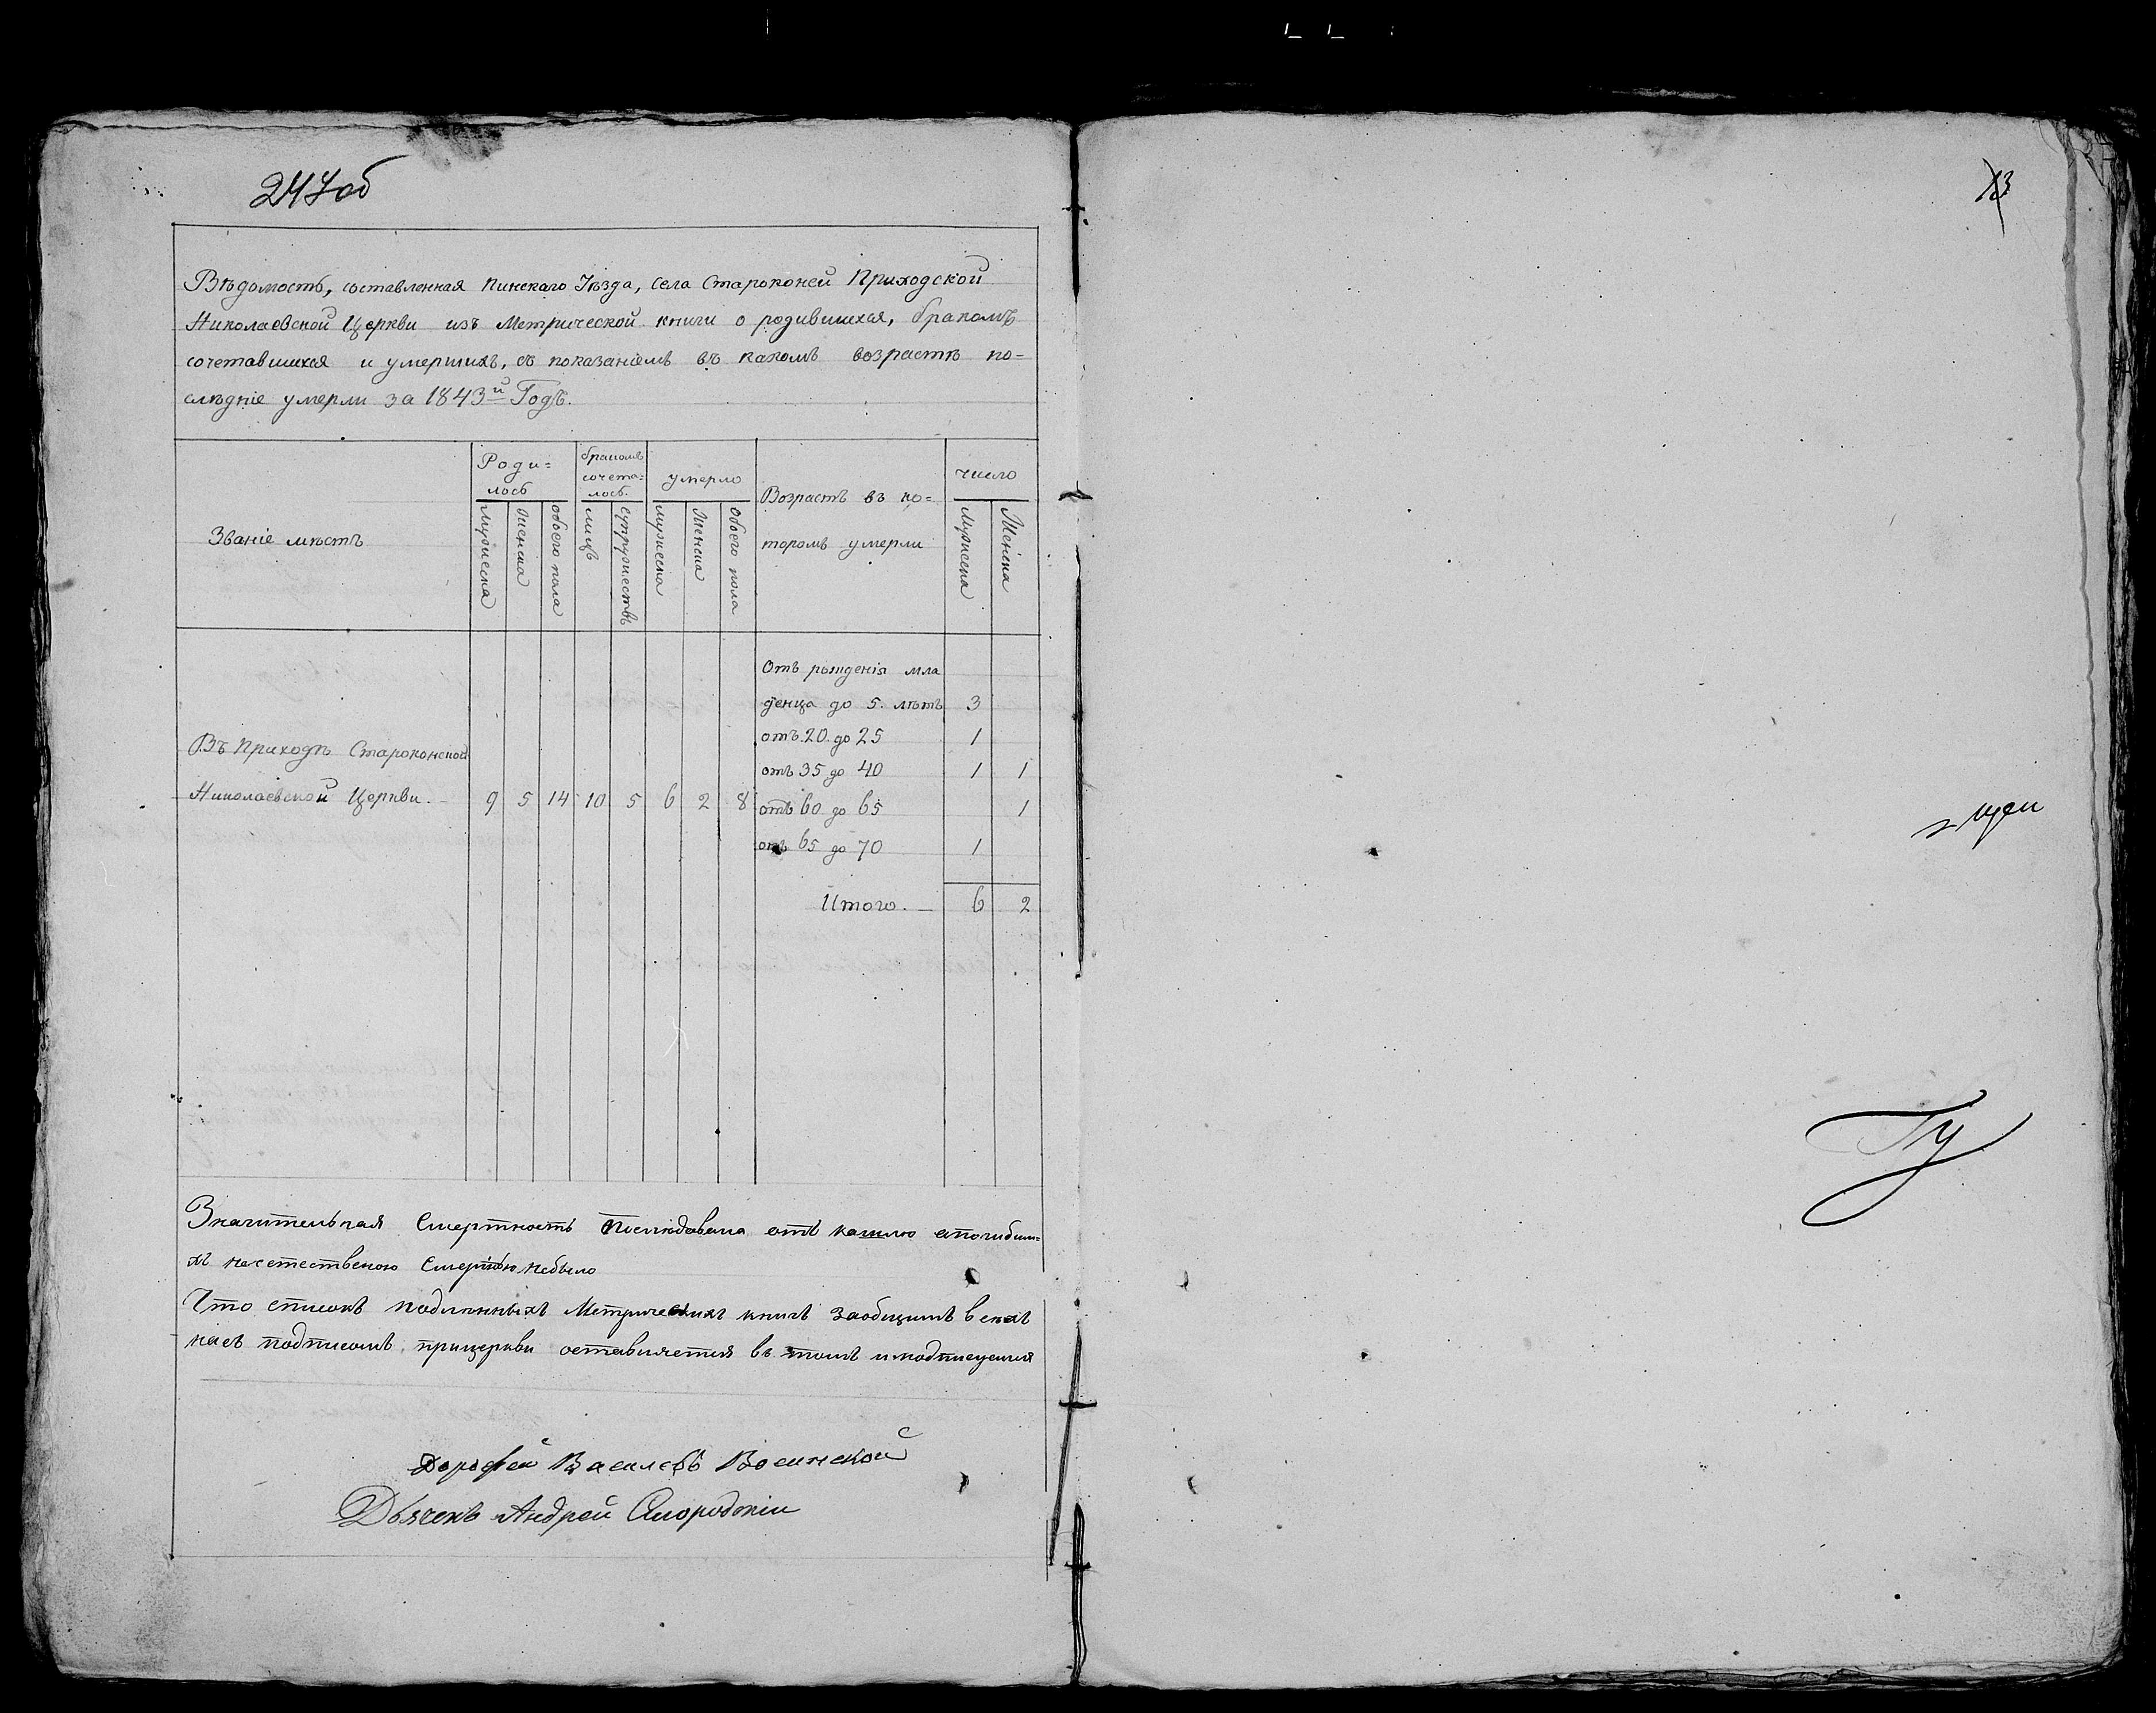 247об
Вѣдомость, составленная Пинскаго Уѣзда, села Староконей Приходской
Николаевской Церкви изъ Метрической книги о родившихся, бракомъ
сочетавшихся и умершихъ, съ показаніемъ въ какомъ возрастѣ по=
слѣдніе умерли за 1843й Годъ.
Званіе мѣстъ
Роди=
лось
мужеска
женска
обоего пола
бракомъ
сочета=
лось.
лицъ
супружествъ
умерло
мужеска
женска
обоего пола
Возрастъ въ ко=
торомъ умерли
число
Мужеска
Женска
Въ Приходѣ Староконской
Николаевской Церкви. 9 5 14 10 5 6 2 8
Отъ рожденія мла
денца до 5. лѣтъ 3
отъ 20 до 25 1
отъ 35 до 40 1 1
отъ 60 до 65 1
отъ 65 до 70 1
Итого. — 6 2
Значительная Смертность Последовала отъ кашлю апогибши=
хъ неестественою Смертию небыло
Что списокъ подлинныхъ Метрическихъ книгъ заобщимъ всехъ
насъ подписомъ прицеркви оставляется въ томъ иподписуемся
Дорофей Васильевъ
Дьячекъ Андрей
13